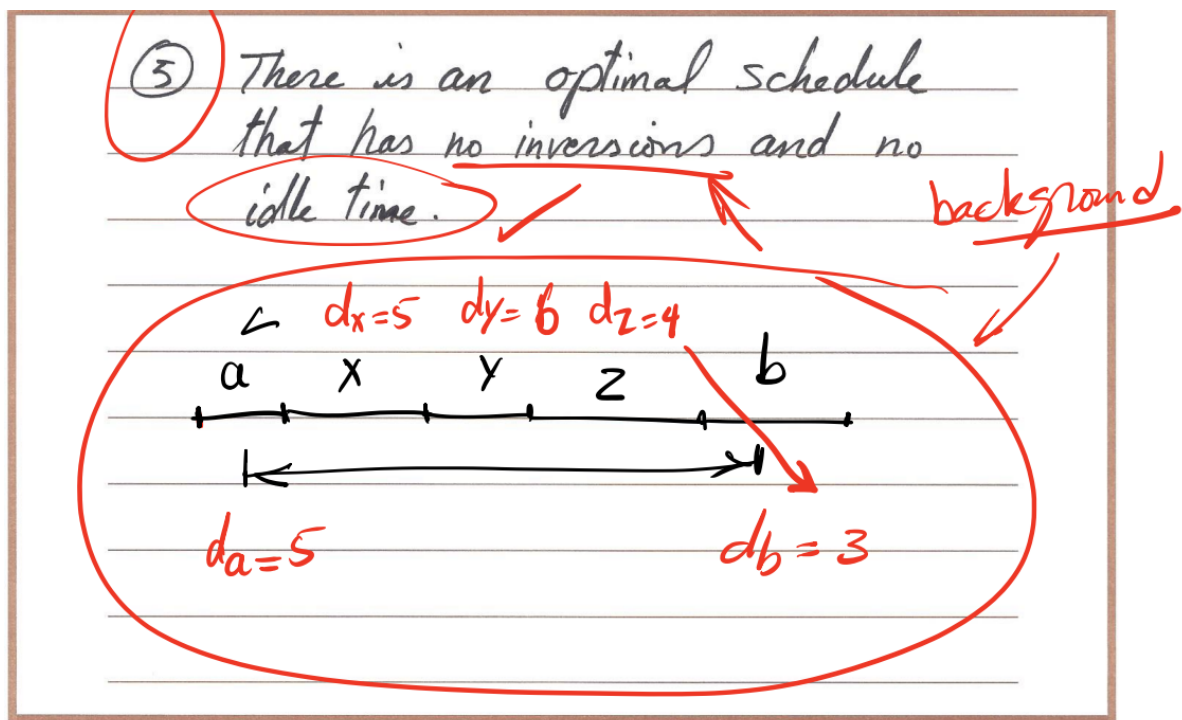 ⑤ There is an optimal schedule
that has no inversions and no
idle time.
background
dx=5 dy=6 dz=4
a x y z b
da=5 db=3